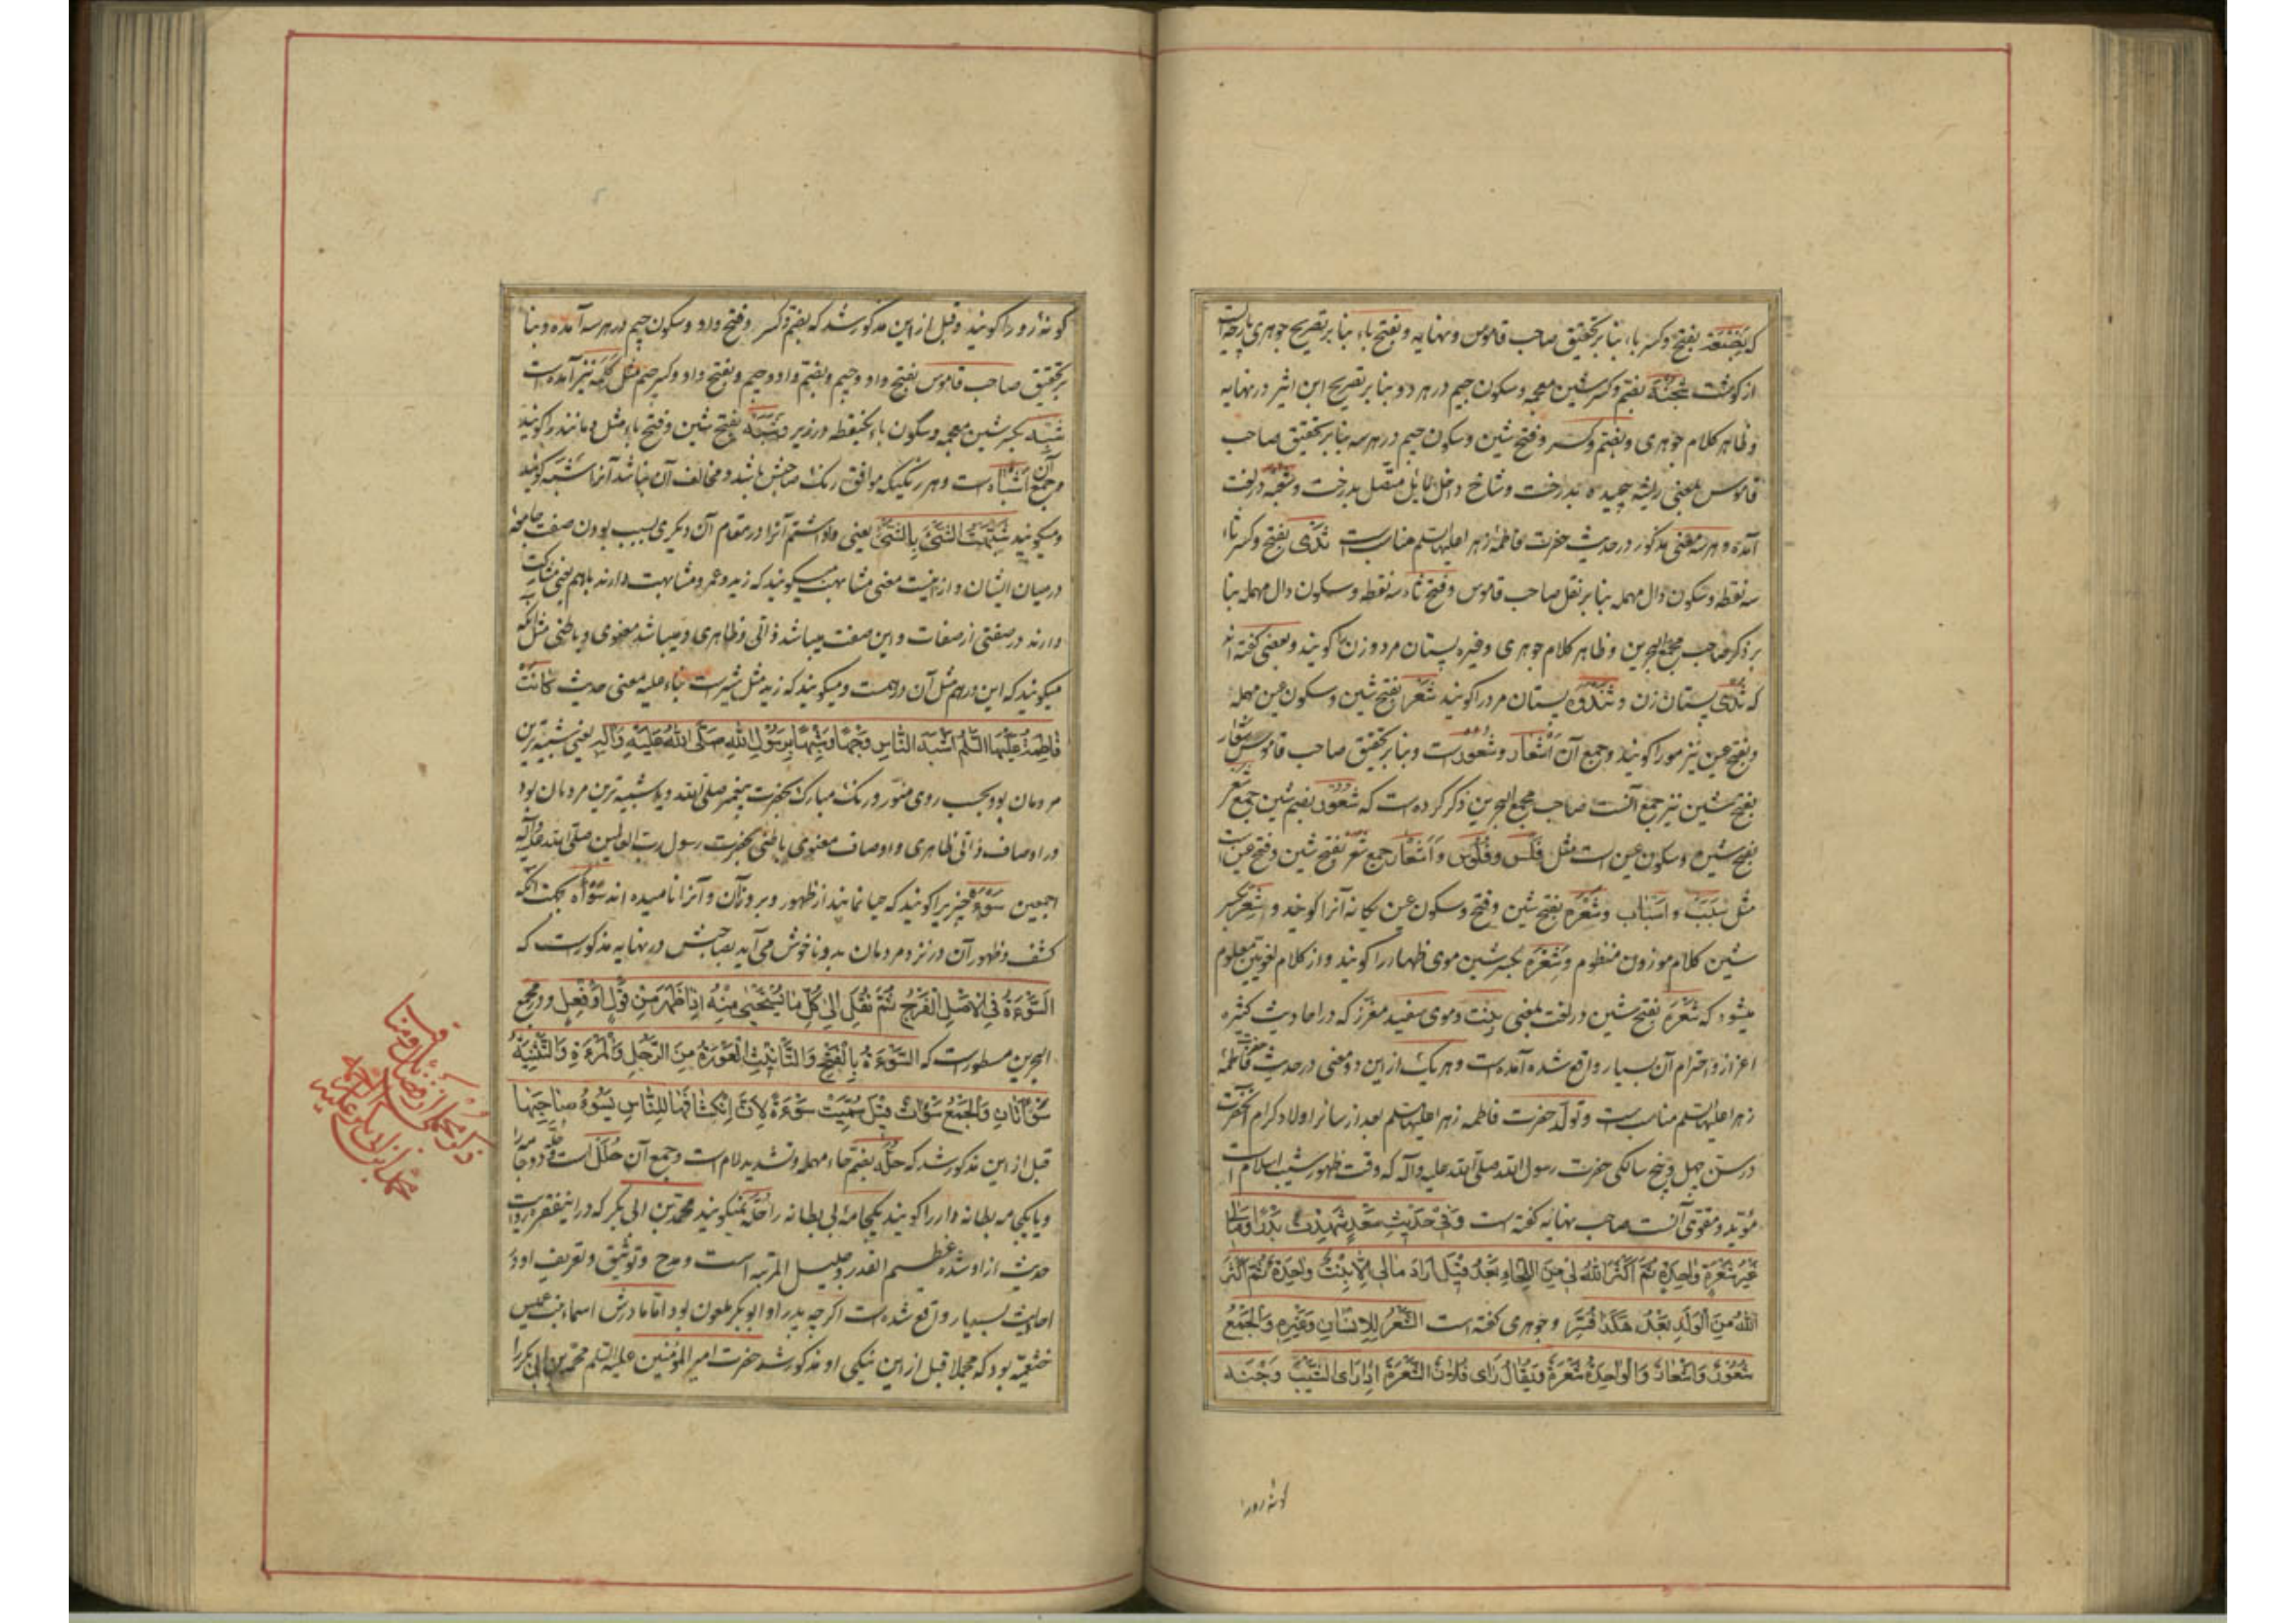 که بضعة بفتح و کسر باء بنا بر تحقیق صاحب قاموس و نهایه و بفتح باء بنا بر تصریح جوهری پارچه ایست
از گوشت شجنة بضم و کسر شین معجمه و سکون جیم در هر دو بنا بر تصریح ابن اثیر در نهایه
و ظاهر کلام جوهری و بضم و کسر و فتح شین و سکون جیم در هر سه بنا بر تحقیق صاحب
قاموس بمعنی ریشه چپیده بدرخت و شاخ داخل متصل بدرخت و شعبه در لغت
آمده و هر سه معنی مذکور در حدیث حضرت فاطمه زهرا علیها السلم مناسب است ثدی بفتح و کسر ثاء
سه نقطه و سکون دال مهمله بنا بر نقل صاحب قاموس و فتح ثاء سه نقطه و سکون دال مهمله بنا
بر ذکر صاحب مجمع البحرین و ظاهر کلام جوهری و غیره پستان مرد و زن را کویند و بعضی کفته اند
که ثدی پستان زن و ثندوه پستان مرد را کویند شعر بفتح شین و سکون عین مهمله
و بفتح عین نیز مو را کویند و جمع آن اشعار و شعور است و بنا بر تحقیق صاحب قاموس شعار
بفتح شین نیز جمع آنست صاحب مجمع البحرین ذکر کرده است که شعور بضم شین جمع شعر
بفتح شین و سکون عین است مثل فلس و فلوس و اشعار جمع شعر بفتح شین و فتح عین است
مثل سبب و اسباب و شعرة بفتح شین و فتح و سکون عین یکانه آنرا کویند و شعر بکسر
شین کلام موزون منظوم و شعرة بکسر شین موی ظهار را کویند و از کلام لغویین معلوم
میشود که شعرة بفتح شین در لغت بمعنی بنت و موی سفید مغزز که در احادیث کثیره
اعزاز و احترام آن بسیار واقع شده آمده است و هر یک از این دو معنی در حدیث حضرت فاطمه
زهرا علیها السلم مناسب است و تولد حضرت فاطمه زهرا علیها السلم بعد از سائر اولاد کرام آنحضرت
در سن چهل و پنج سالکی حضرت رسول الله صلی الله علیه وآله که وقت ظهور شیب اسلام است
مؤید و مقوی آنست صاحب نهایه کفته است وَفی حَدیثِ سَعْدٍ شَهِدْتُ بَدْراً وَمالی
غَیْرُ شَعْرَةٍ واحِدَةٍ ثُمَّ اَکْثَرَ اللهُ لی مِنَ اللِّحاءِ بَعْدُ قیلَ اَرادَ مالی اِلّا بِنْتٌ واحِدَةٌ ثُمَّ اَکْثَرَ
اللهُ مِنَ الْوَلَدِ بَعْدُ هکَذا فُسِّرَ و جوهری کفته است الشَّعْرُ لِلْاِنْسانِ وَغَیْرِهِ وَالْجَمْعُ
شُعُورٌ وَاَشْعارٌ وَالْواحِدَةُ شَعْرَةٌ وَیُقالُ رَاٰی فُلانٌ الشَّعْرَةَ اِذا رَاٰی الشَّیْبَ وَجْنَه
کونه رو را
کونه رو را کویند و قبل از این مذکور شد که بضم و کسر و فتح واو و سکون جیم در هر سه آمده و بنا
بر تحقیق صاحب قاموس بفتح واو و جیم و بضم واو و جیم و بفتح واو و کسر جیم مثل کلمه نیز آمده است
شبه بکسر شین معجمه و سکون باء یکنقطه در زیر و شبه بفتح شین و فتح باء مثل و مانند را کویند
و جمع آن اشباه است و هر رنکیکه موافق رنک صاحبش باشد و مخالف آن نباشد آنرا شبه کویند
و میکویند شَبَّهْتُ الشَّیْءَ بِالشَّیْءِ یعنی واداشتم آنرا در مقام آن دیکری بسبب بودن صفت جامعه
در میان ایشان و از اینست معنی مشابهت میکویند که زید و عمرو مشابهت دارند باهم یعنی مشارکت
دارند در صفتی از صفات و این صفت میباشد ذاتی و ظاهری و میباشد معنوی و باطنی مثل آنکه
میکویند که این درهم مثل آن درهمست و میکویند که زید مثل شیر است بناء علیه معنی حدیث کانَتْ
فاطِمَةُ عَلَیْهَا السَّلمُ اَشْبَهَ النّاسِ وَجْهاً وَشَبَهاً بِرَسُولِ اللهِ صَلَّی اللهُ عَلَیْهِ وَآلِهِ یعنی شبیه ترین
مردمان بود بحسب روی منور و رنک مبارک بحضرت پیغمبر صلی الله و یا شبیه ترین مردمان بود
در اوصاف ذاتی ظاهری و اوصاف معنوی باطنی بحضرت رسول رب العالمین صلی الله علیه وآله
اجمعین سوءة چیزیرا کویند که حیا نمایند از ظهور و بروز آن و آنرا نامیده اند سوأة بجهت آنکه
کشف و ظهور آن در نزد مردمان بد و ناخوش می آید بصاحبش در نهایه مذکور است که
اَلسَّوْءَةُ فِی الْاَصْلِ الْفَرْجُ ثُمَّ نُقِلَ اِلی کُلِّ ما یُسْتَحْیی مِنْهُ اِذا ظَهَرَ مِنْ قَوْلٍ اَوْ فِعْلٍ و در مجمع
البحرین مسطور است که السَّوْءَةُ بِالْفَتْحِ وَالتّأنیثِ الْعَوْرَةُ مِنَ الرَّجُلِ وَالْمَرْءَةِ وَالتَّثْنِیَةُ
سَوْأتانِ وَالْجَمْعُ سَوْآتٌ قیلَ سُمِّیَتْ سَوْءَةً لِاَنَّ اِنْکِشافَها لِلنّاسِ یَسُوءُ صاحِبَها
قبل از این مذکور شد که حلّه بضم حاء مهمله و تشدید لام است و جمع آن حلل است و حلّه دو جامه را
و یا یکجامه بطانه دار را کویند یکجامه بی بطانه را حلّه نمیکویند محمد بن ابی بکر که در این فقره روایت
حدیث از او شده عظیم القدر و جلیل المرتبه است و مدح و توثیق و تعریف او در
احادیث بسیار واقع شده است اکرچه پدر او ابوبکر ملعون بود اما مادرش اسماء بنت عمیس
خثعمیّه بود که مجملا قبل از این نیکی او مذکور شد حضرت امیر المؤمنین علیه السلم محمد بن ابی بکر را
ذکر مجملی از فضائل و مناقب
محمد بن ابی بکر علیه